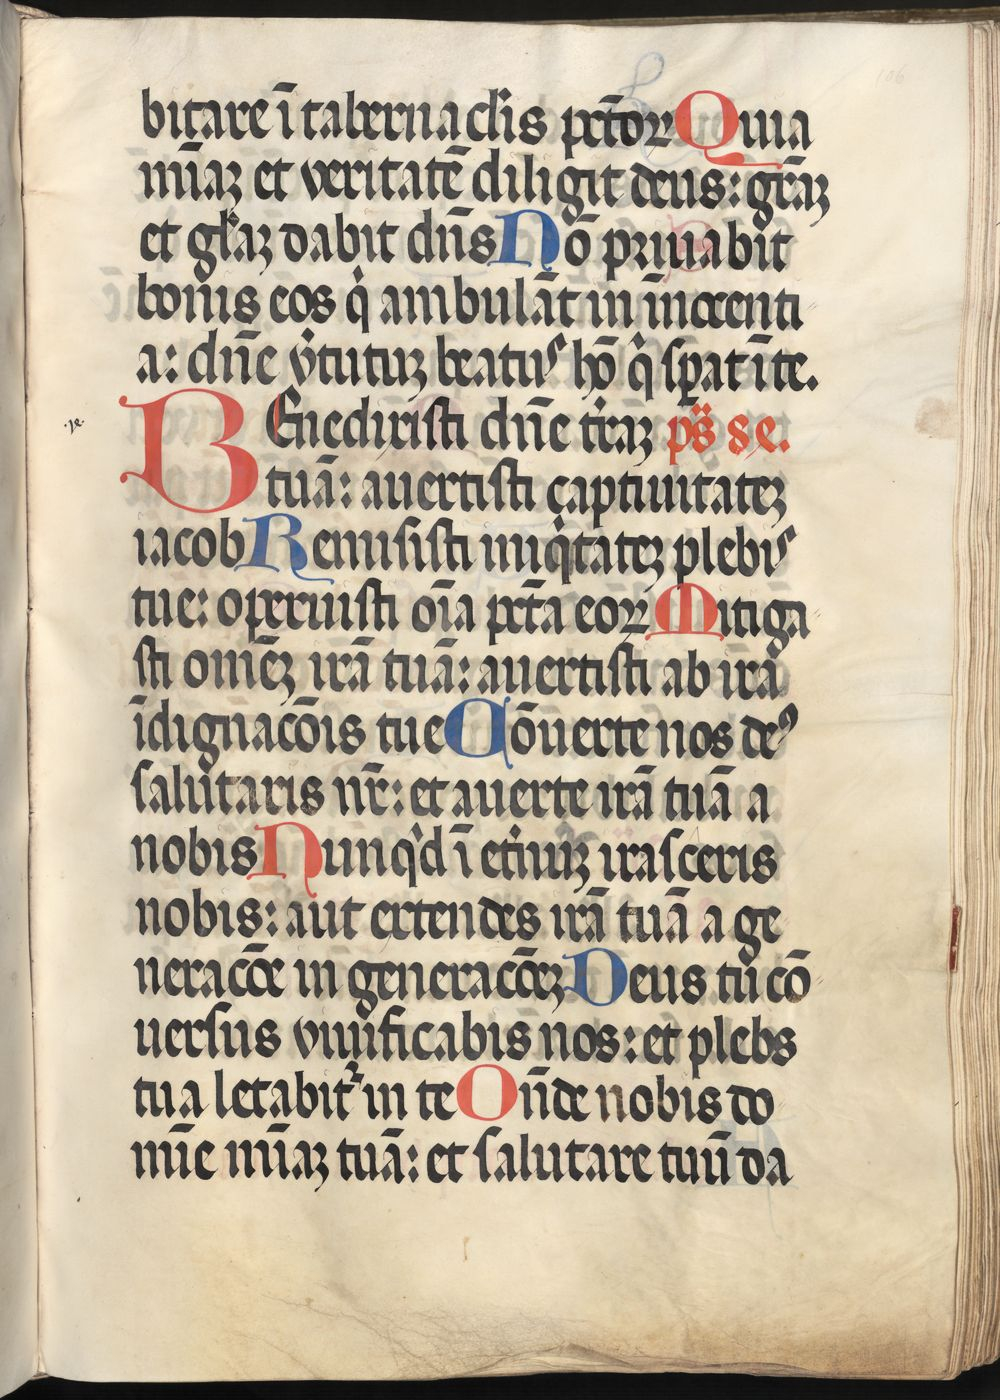 bitare ī tabernaclis pctōꝝ Quia
mīaꝫ et veritatē diligit deus: gr̄aꝫ
et gl̄aꝫ dabit dn̄s Nō priuabit
bonis eos qͥ ambulāt in īnocenti
a: dn̄e v̓tutuꝫ beatꝰ hō qͥ sꝑat ī te.
BEnedixisti dn̄e tr̄aꝫ ps̄
tuā: auertisti captiuitateꝫ
iacob Remisisti iniqͥtateꝫ plebis
tue: operuisti oīa pctā eoꝝ Mitiga
sti omēꝫ irā tuā: auertisti ab ira
īdignacōis tue Cōuerte nos deꝰ
salutaris nr̄: et auerte irā tuā a
nobis Nunqͥd ī et̓nuꝫ irasceris
nobis: aut extendes irā tuā a ge
neracōe in generacōeꝫ Deus tu cō
uersus viuificabis nos: et plebs
tua letabit᷑ in te On̄de nobis do
mīe mīaꝫ tuā: et salutare tuū da
106